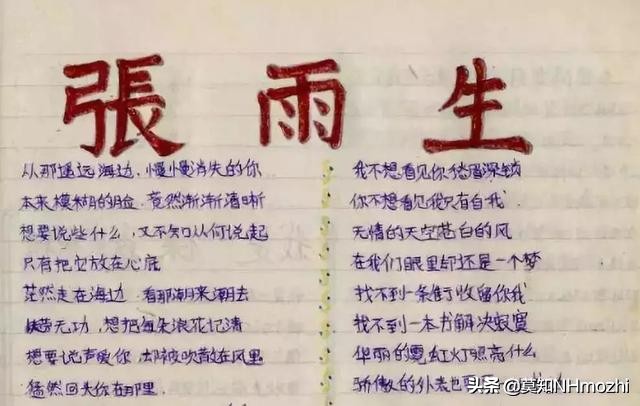 張 雨 生
从那遥远海边.慢慢消失的你
本来模糊的脸.竟然渐渐清晰
想要说些什么,又不知从何说起
只有把它放在心底
茫然走在海边 看那潮来潮去
徒劳无功,想把每朵浪花记清
想要说声爱你,却被吹散在风里
猛然回头你在那里.
我不想看见你眉深锁
你不想看见我只有自我.
无情的天空苍白的风
在我们眼里却还是一个梦
找不到一条街收留你我
找不到一本书解决寂寞
华丽的霓虹灯照亮什么
骄傲的外表也
头条 @莫知NHmozhi